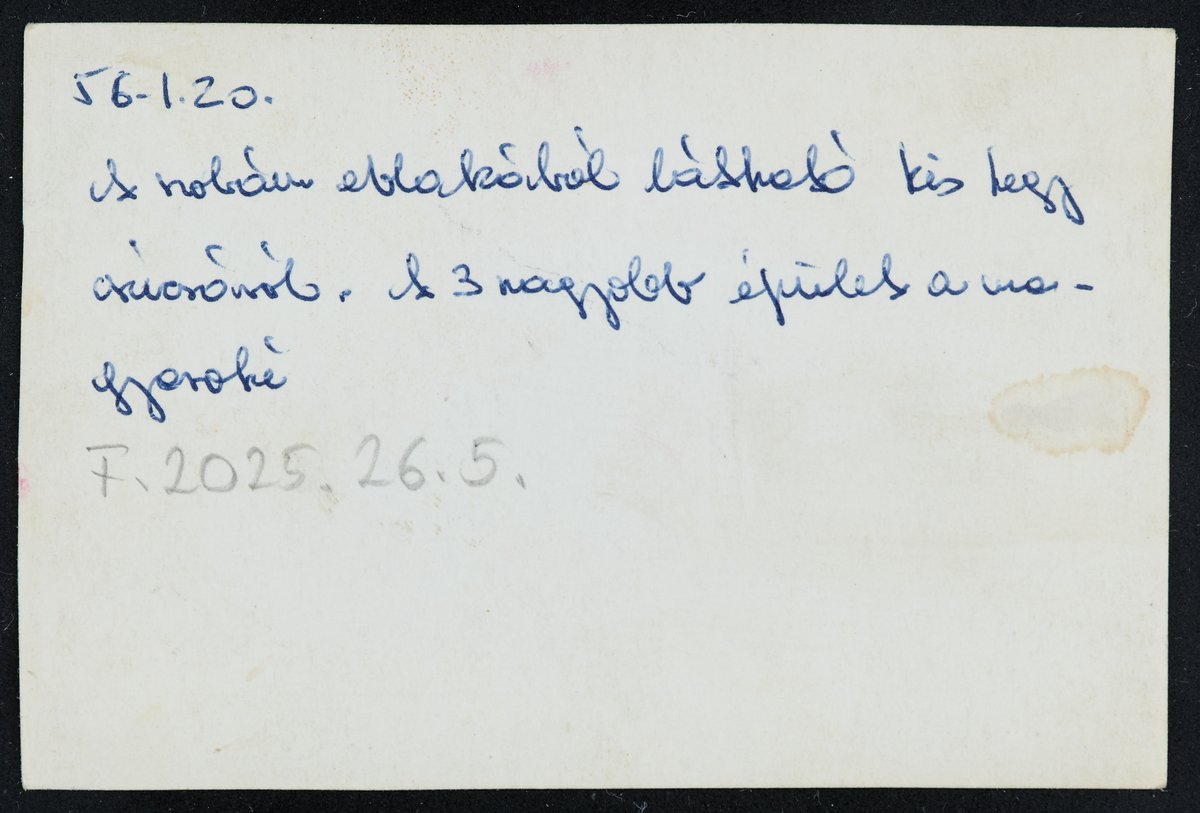 56-1.20.
A szobám ablakából látható kis hegy
csúcsáról. A 3 nagyobb épület a ma-
gyaroké
F. 2025. 26. 5.